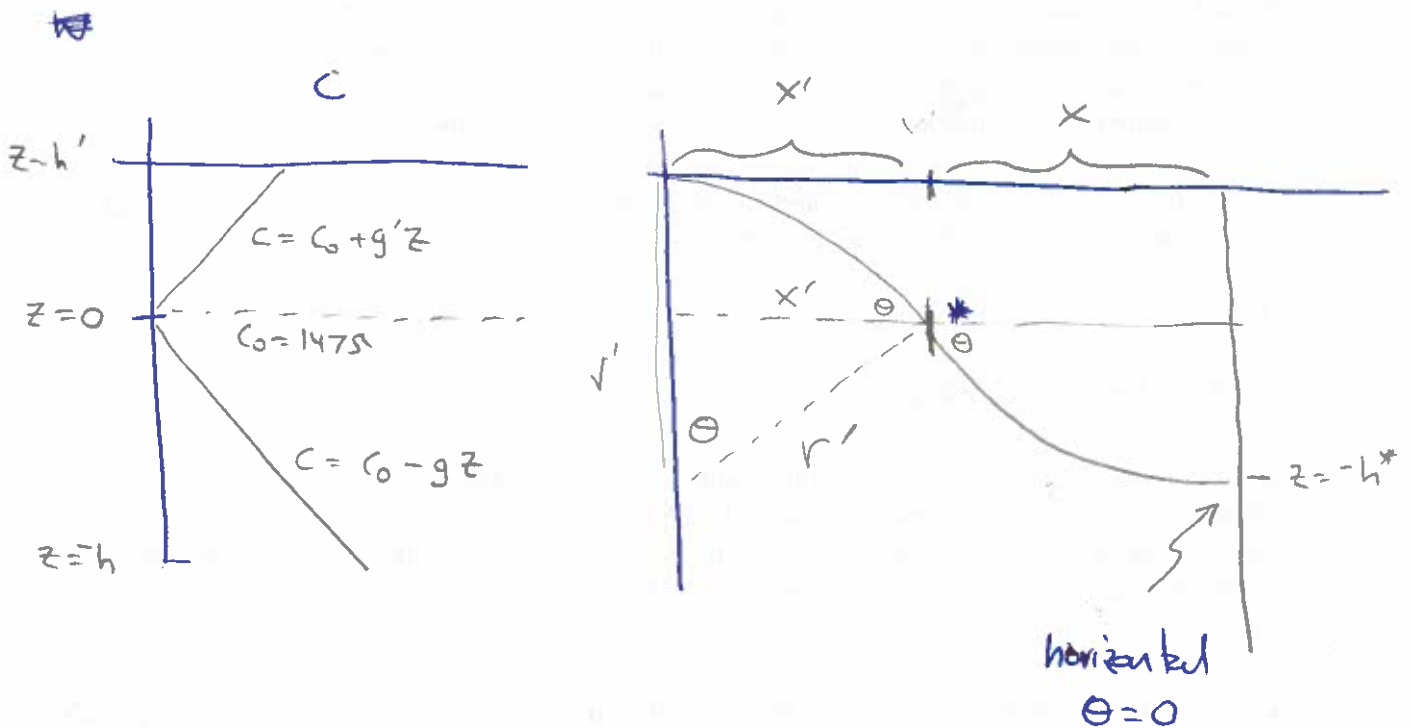 C
z=h'
C = C₀ + g'z
z=0
C₀ = 1475
C = C₀ - gz
z=-h
x'
x
x'
θ
*
θ
r'
θ
r'
z=-h*
horizontal
θ=0